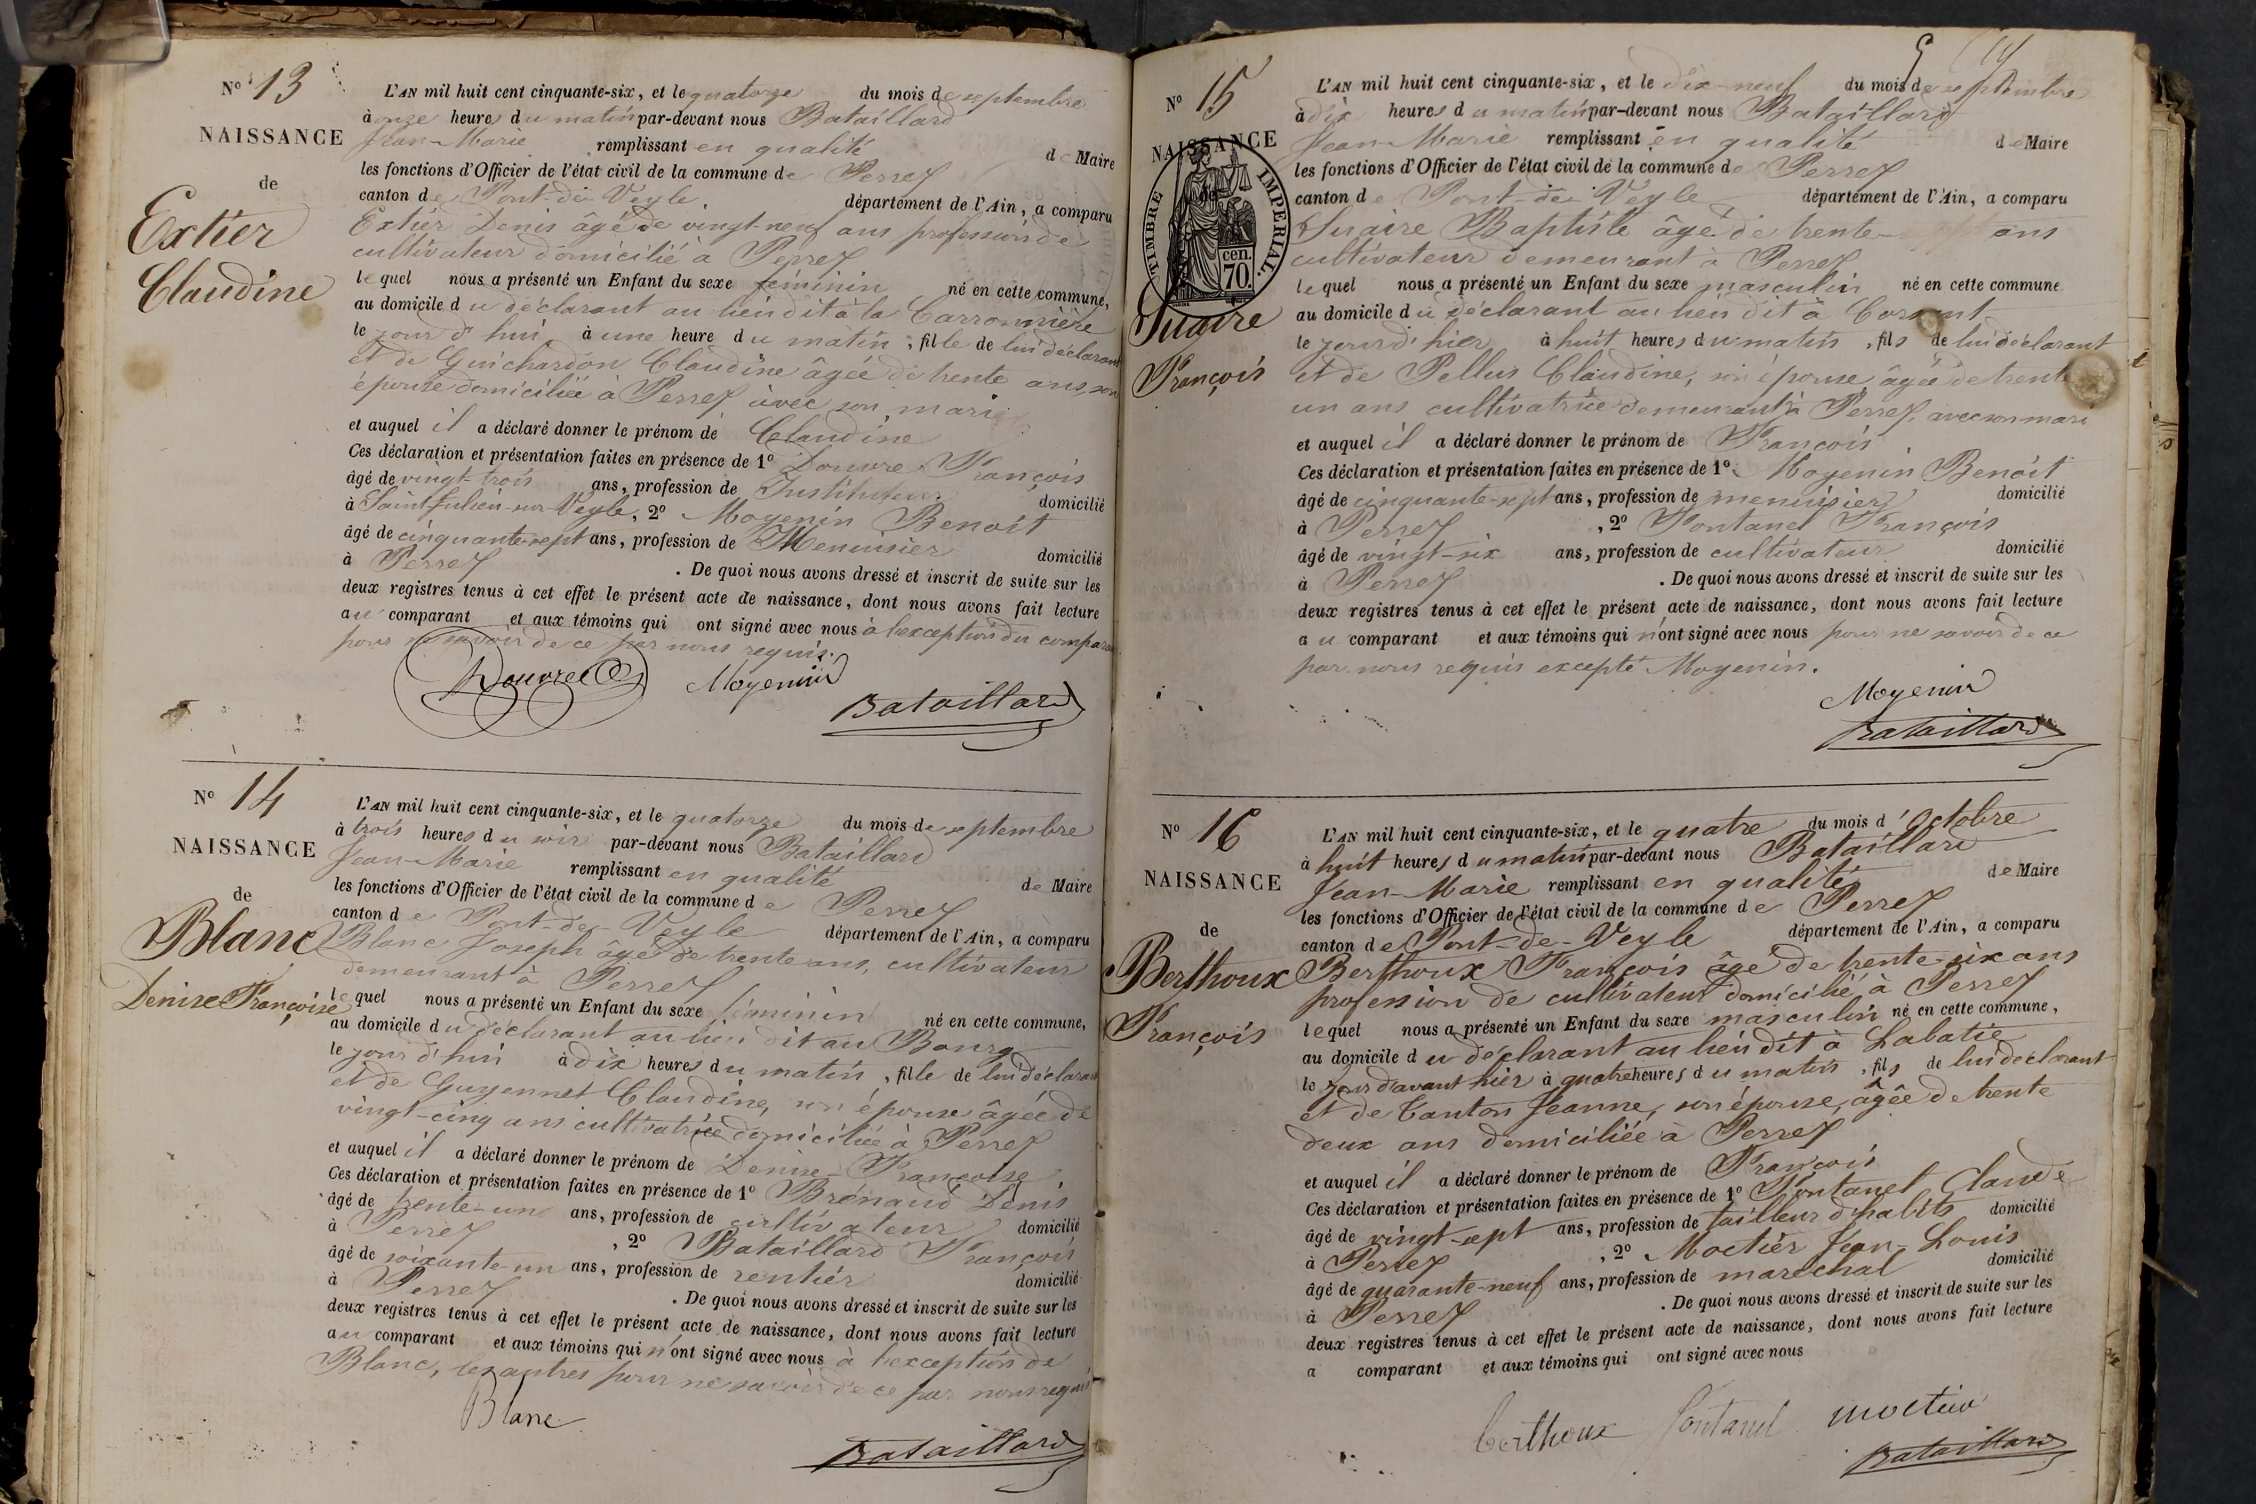 N° 13
NAISSANCE
de
Extier
Claudine
L'AN mil huit cent cinquante-six, et le quatorze du mois de septembre
à onze heures du matin par-devant nous Bataillard
Jean-Marie remplissant en qualité de Maire
les fonctions d'Officier de l'état civil de la commune de Perrex
canton de Pont-de-Veyle département de l'Ain, a comparu
Extier Denis âgé de vingt-neuf ans profession de
cultivateur domicilié à Perrex
lequel nous a présenté un Enfant du sexe féminin né en cette commune,
au domicile du déclarant au lieu dit à la Carronnière
le jour d'hui à une heure du matin, fille de lui déclarant
et de Guichardon Claudine âgée de trente ans, son
épouse domiciliée à Perrex avec son mari
et auquel il a déclaré donner le prénom de Claudine
Ces déclaration et présentation faites en présence de 1° Douvre François
âgé de vingt-trois ans, profession de Instituteur domicilié
à Saint Julien-sur-Veyle, 2° Moyenin Benoît
âgé de cinquante-sept ans, profession de Menuisier domicilié
à Perrex . De quoi nous avons dressé et inscrit de suite sur les
deux registres tenus à cet effet le présent acte de naissance, dont nous avons fait lecture
au comparant et aux témoins qui ont signé avec nous à l'exception du comparant
pour ne savoir de ce par nous requis.
Moyenin
Bataillard
N° 14
NAISSANCE
de
Blanc
Denise Françoise
L'AN mil huit cent cinquante-six, et le quatorze du mois de septembre
à trois heures du soir par-devant nous Bataillard
Jean-Marie remplissant en qualité de Maire
les fonctions d'Officier de l'état civil de la commune de Perrex
canton de Pont-de-Veyle département de l'Ain, a comparu
Blanc Joseph âgé de trente ans, cultivateur
demeurant à Perrex
lequel nous a présenté un Enfant du sexe féminin né en cette commune,
au domicile du déclarant au lieu dit au Bourg
le jour d'hui à dix heures du matin, fille de lui déclarant
et de Guyennet Claudine, son épouse âgée de
vingt-cinq ans cultivatrice domiciliée à Perrex
et auquel il a déclaré donner le prénom de Denise-Françoise
Ces déclaration et présentation faites en présence de 1° Brénaud Denis
âgé de trente-un ans, profession de cultivateur domicilié
à Perrex , 2° Bataillard François
âgé de soixante-un ans, profession de rentier domicilié
à Perrex . De quoi nous avons dressé et inscrit de suite sur les
deux registres tenus à cet effet le présent acte de naissance, dont nous avons fait lecture
au comparant et aux témoins qui n'ont signé avec nous à l'exception de
Blanc, les autres pour ne savoir de ce par nous requis
Blanc
Bataillard
N° 15
NAISSANCE
de
TIMBRE IMPERIAL.
cen.
70.
Suaire
François
L'AN mil huit cent cinquante-six, et le dix-neuf du mois de septembre
à dix heures du matin par-devant nous Bataillard
Jean-Marie remplissant en qualité de Maire
les fonctions d'Officier de l'état civil de la commune de Perrex
canton de Pont-de-Veyle département de l'Ain, a comparu
Suaire Baptiste âgé de trente- ans
cultivateur demeurant à Perrex
lequel nous a présenté un Enfant du sexe masculin né en cette commune
au domicile du déclarant au lieu dit à
le jour d'hier à huit heures du matin, fils de lui déclarant
et de Pellus Claudine, son épouse âgée de trente
un ans cultivatrice demeurant à Perrex avec son mari
et auquel il a déclaré donner le prénom de François
Ces déclaration et présentation faites en présence de 1° Moyenin Benoît
âgé de cinquante-sept ans, profession de menuisier domicilié
à Perrex , 2° Fontanel François
âgé de vingt-six ans, profession de cultivateur domicilié
à Perrex . De quoi nous avons dressé et inscrit de suite sur les
deux registres tenus à cet effet le présent acte de naissance, dont nous avons fait lecture
au comparant et aux témoins qui n'ont signé avec nous pour ne savoir de ce
par nous requis excepté Moyenin.
Moyenin
Bataillard
N° 16
NAISSANCE
de
Berthoux
François
L'AN mil huit cent cinquante-six, et le quatre du mois d'Octobre
à huit heures du matin par-devant nous Bataillard
Jean-Marie remplissant en qualité de Maire
les fonctions d'Officier de l'état civil de la commune de Perrex
canton de Pont-de-Veyle département de l'Ain, a comparu
Berthoux François âgé de trente-six ans
profession de cultivateur domicilié à Perrex
lequel nous a présenté un Enfant du sexe masculin né en cette commune,
au domicile du déclarant au lieu dit à Labatie
le jour d'avant hier à quatre heures du matin, fils de lui déclarant
et de Tanton Jeanne, son épouse, âgée de trente
deux ans domiciliée à Perrex
et auquel il a déclaré donner le prénom de François
Ces déclaration et présentation faites en présence de 1° Fontanel Claude
âgé de vingt-sept ans, profession de tailleur d'habits domicilié
à Perrex , 2° Moctier Jean-Louis
âgé de quarante-neuf ans, profession de maréchal domicilié
à Perrex . De quoi nous avons dressé et inscrit de suite sur les
deux registres tenus à cet effet le présent acte de naissance, dont nous avons fait lecture
a comparant et aux témoins qui ont signé avec nous
Berthoux Fontanel Moctier
Bataillard